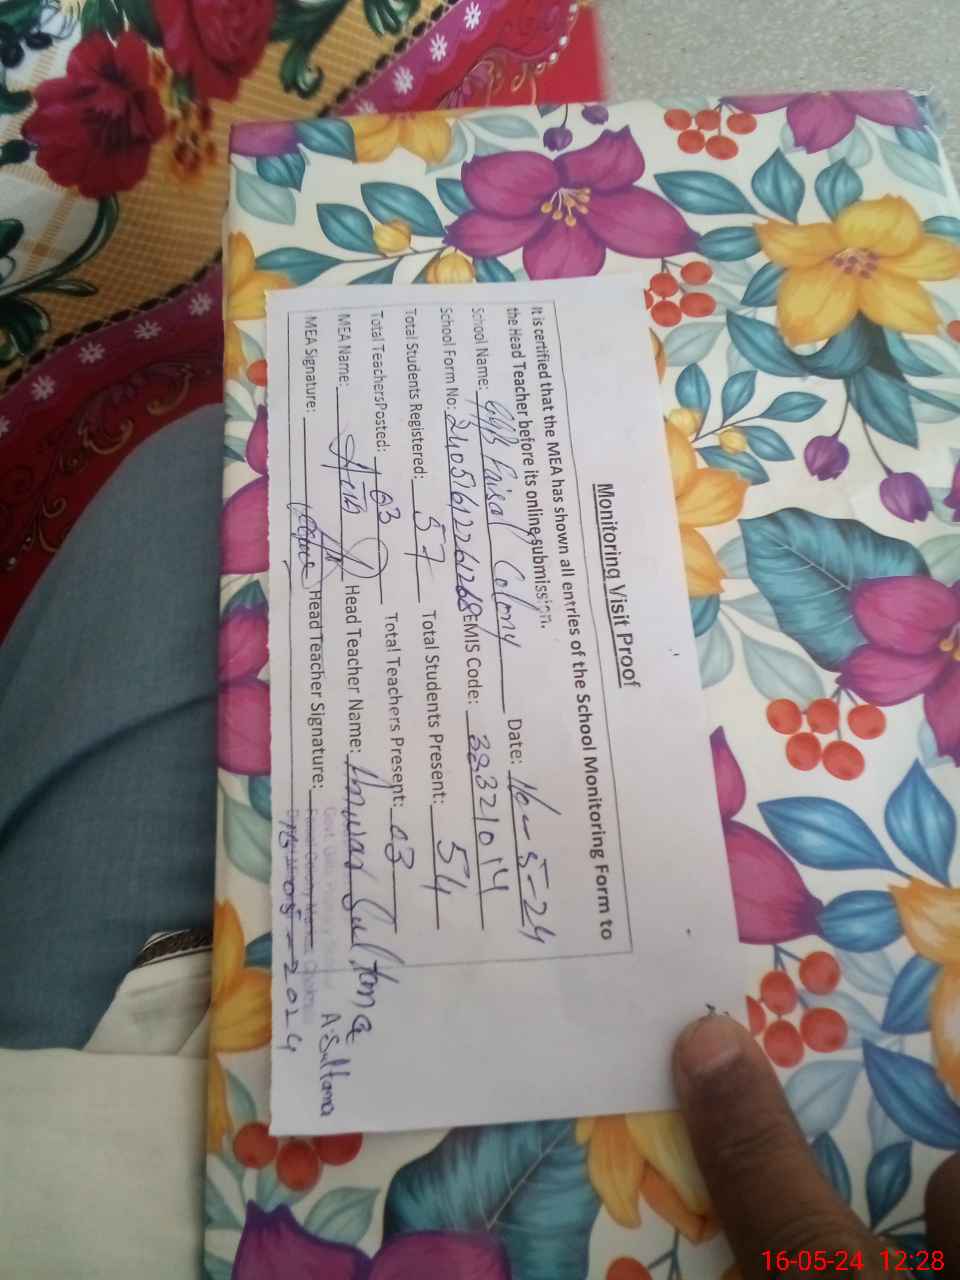 Monitoring Visit Proof
It is certified that the MEA has shown all entries of the School Monitoring Form to
the Head Teacher before its online submission.
School Name: Faisal Colony Date: 16-5-24
School Form No: EMIS Code: 38321014
Total Students Registered: 57 Total Students Present: 54
Total TeachersPosted: 03 Total Teachers Present: 03
MEA Name: Head Teacher Name: Sultana
MEA Signature: Head Teacher Signature: A.Sultana
16-05-2024
16-05-24 12:28